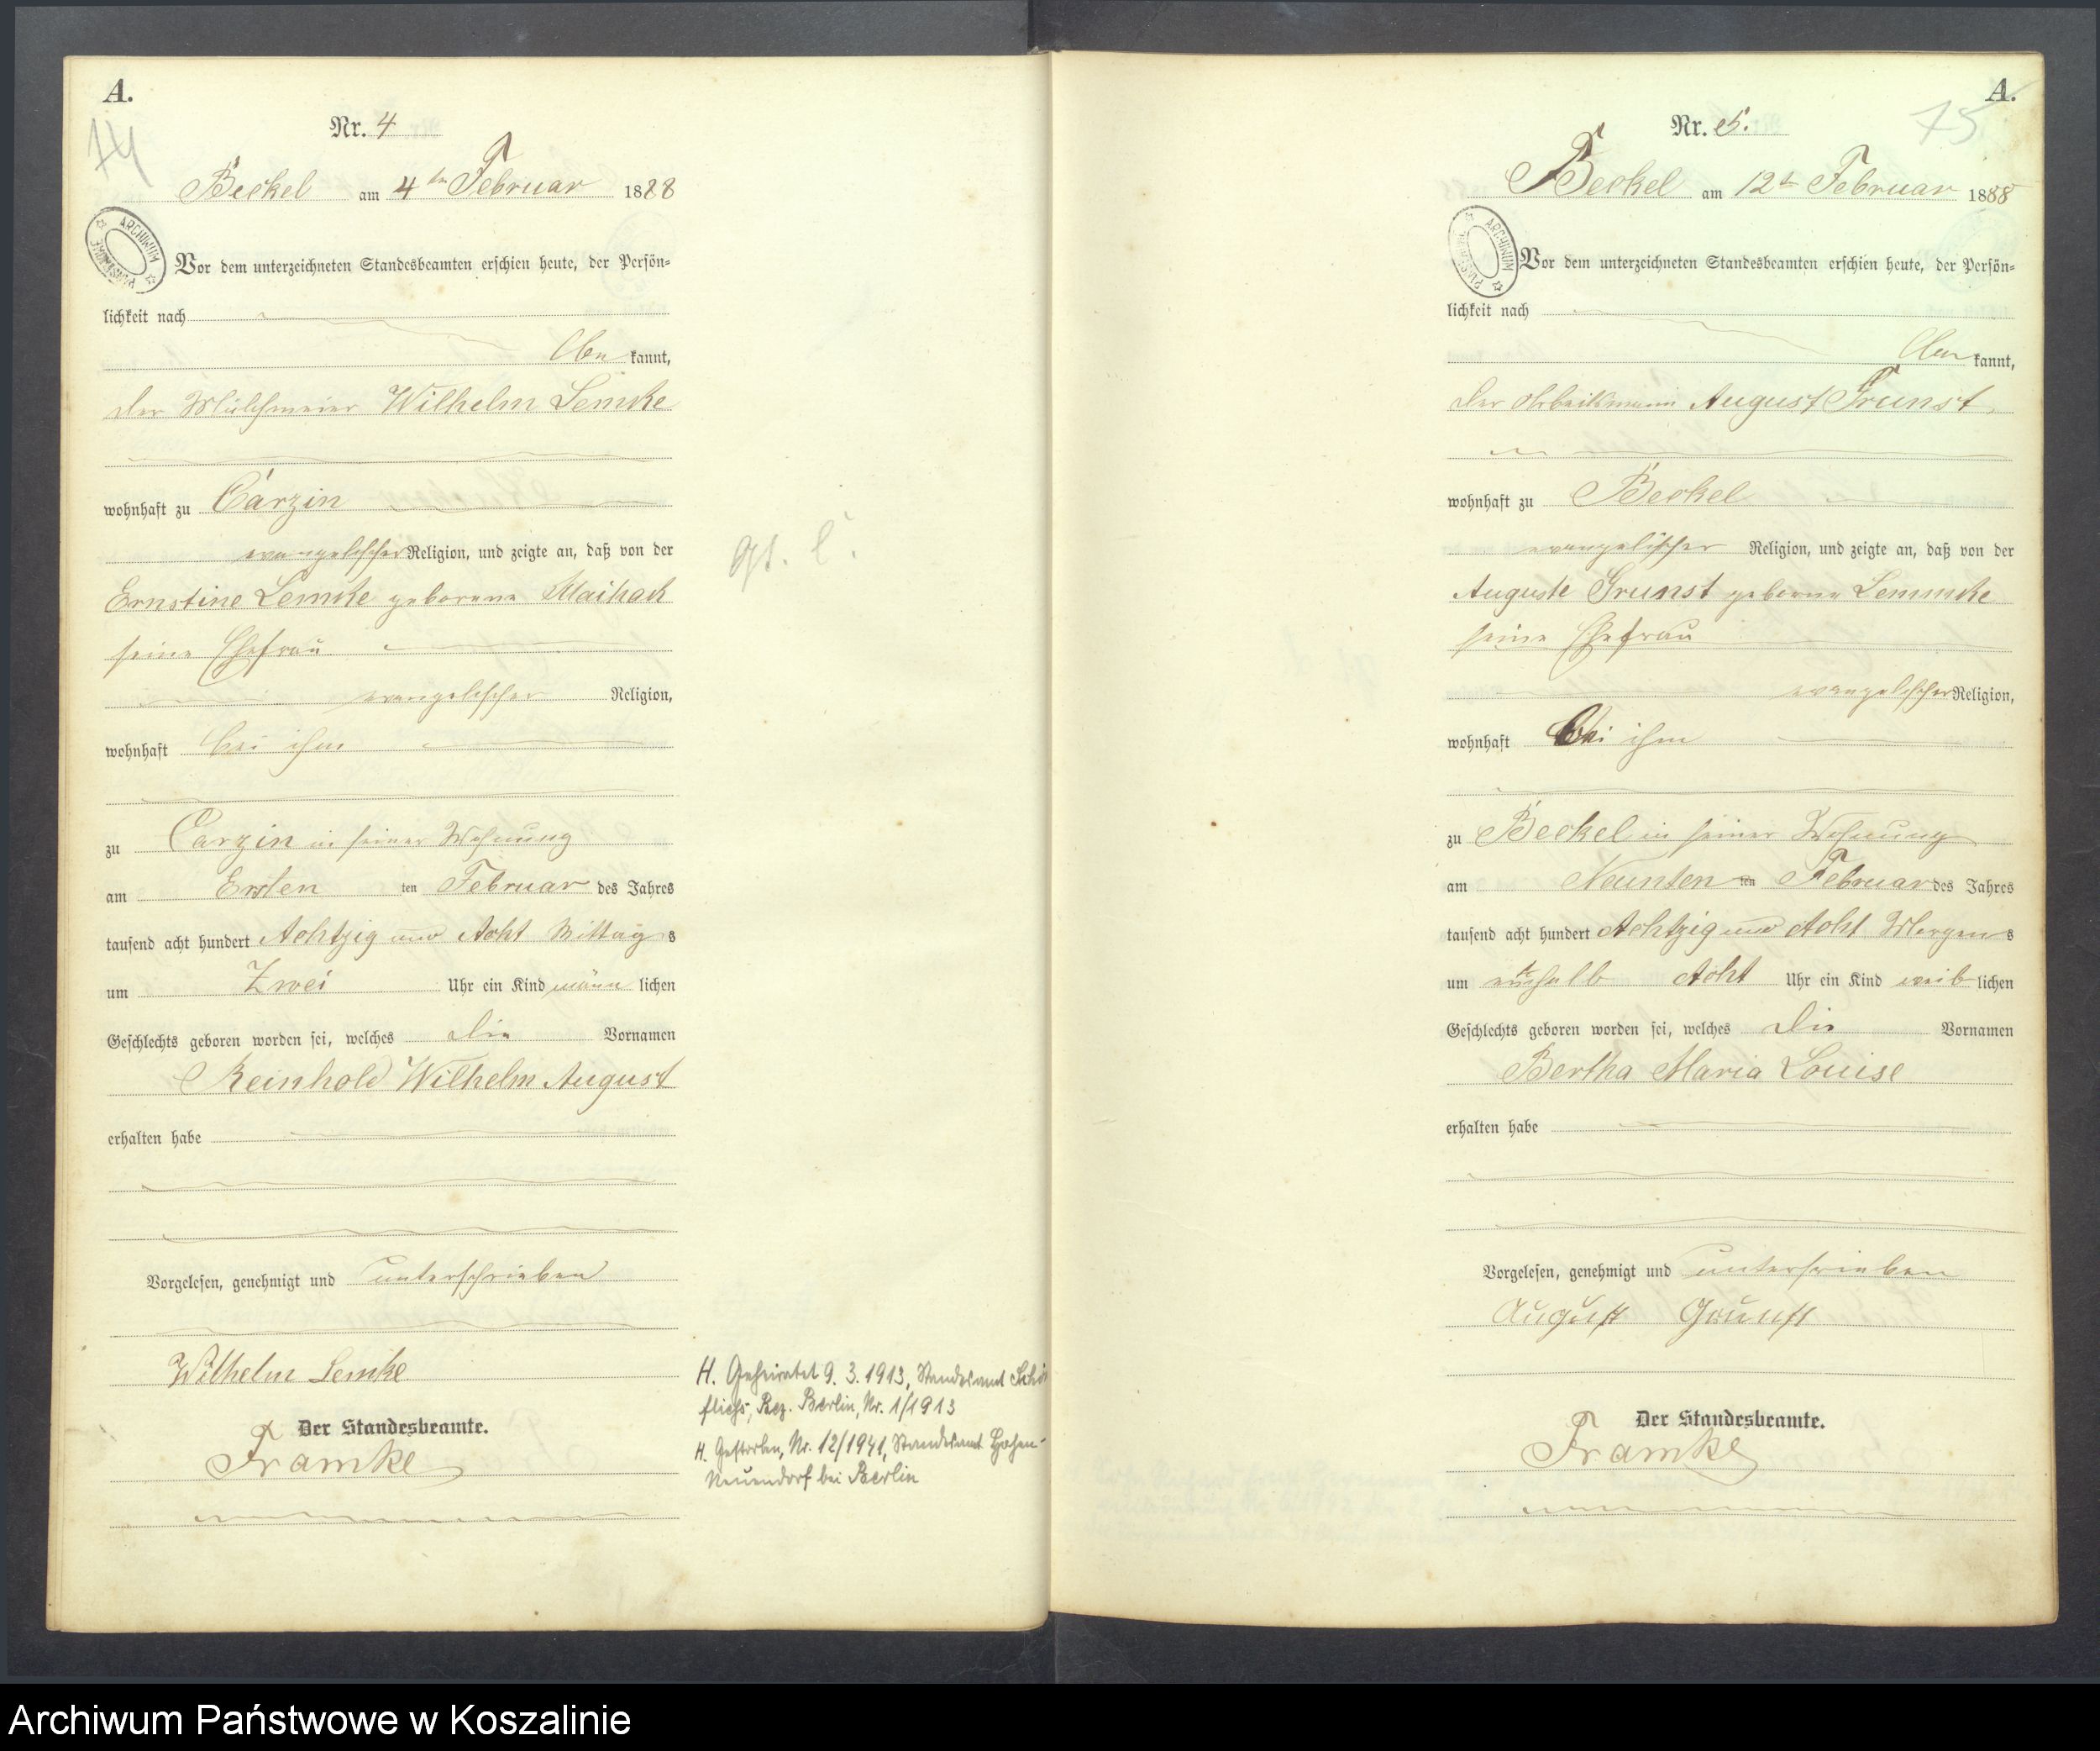 A.
14
Nr. 4
Beckel am 4ten Februar 1888
ARCHIWUM
Vor dem unterzeichneten Standesbeamten erschien heute, der Persön=
lichkeit nach
be kannt,
der Wilhelm Lemke
wohnhaft zu Carzin
evangelischer Religion, und zeigte an, daß von der
Ernstine Lemke geborene
seine Ehefrau
evangelischer Religion,
wohnhaft bei ihm
zu Carzin in seiner Wohnung
am Ersten ten Februar des Jahres
tausend acht hundert Achtzig und Acht Mittag s
um Zwei Uhr ein Kind männ lichen
Geschlechts geboren worden sei, welches die Vornamen
Reinhold Wilhelm August
erhalten habe
Vorgelesen, genehmigt und unterschrieben
Wilhelm Lemke
Der Standesbeamte.
Framke
H. Geheiratet 9. 3. 1913, Standesamt Schön
fließ, Bez. Berlin, Nr. 1/1913
H. Gestorben, Nr. 12/1941, Standesamt Hohen-
Neuendorf bei Berlin
A.
75
Nr. 5.
Beckel am 12t Februar 1888
ARCHIWUM
Vor dem unterzeichneten Standesbeamten erschien heute, der Persön=
lichkeit nach
be kannt,
der Arbeitsmann August Grunst
wohnhaft zu Beckel
evangelischer Religion, und zeigte an, daß von der
Auguste Grunst geborne Lemmke
seine Ehefrau
evangelischer Religion,
wohnhaft bei ihm
zu Beckel in seiner Wohnung
am Neunten ten Februar des Jahres
tausend acht hundert Achtzig und Acht Morgen s
um Acht Uhr ein Kind weib lichen
Geschlechts geboren worden sei, welches die Vornamen
Bertha Maria Louise
erhalten habe
Vorgelesen, genehmigt und unterschrieben
August Grunst
Der Standesbeamte.
Framke
Archiwum Państwowe w Koszalinie